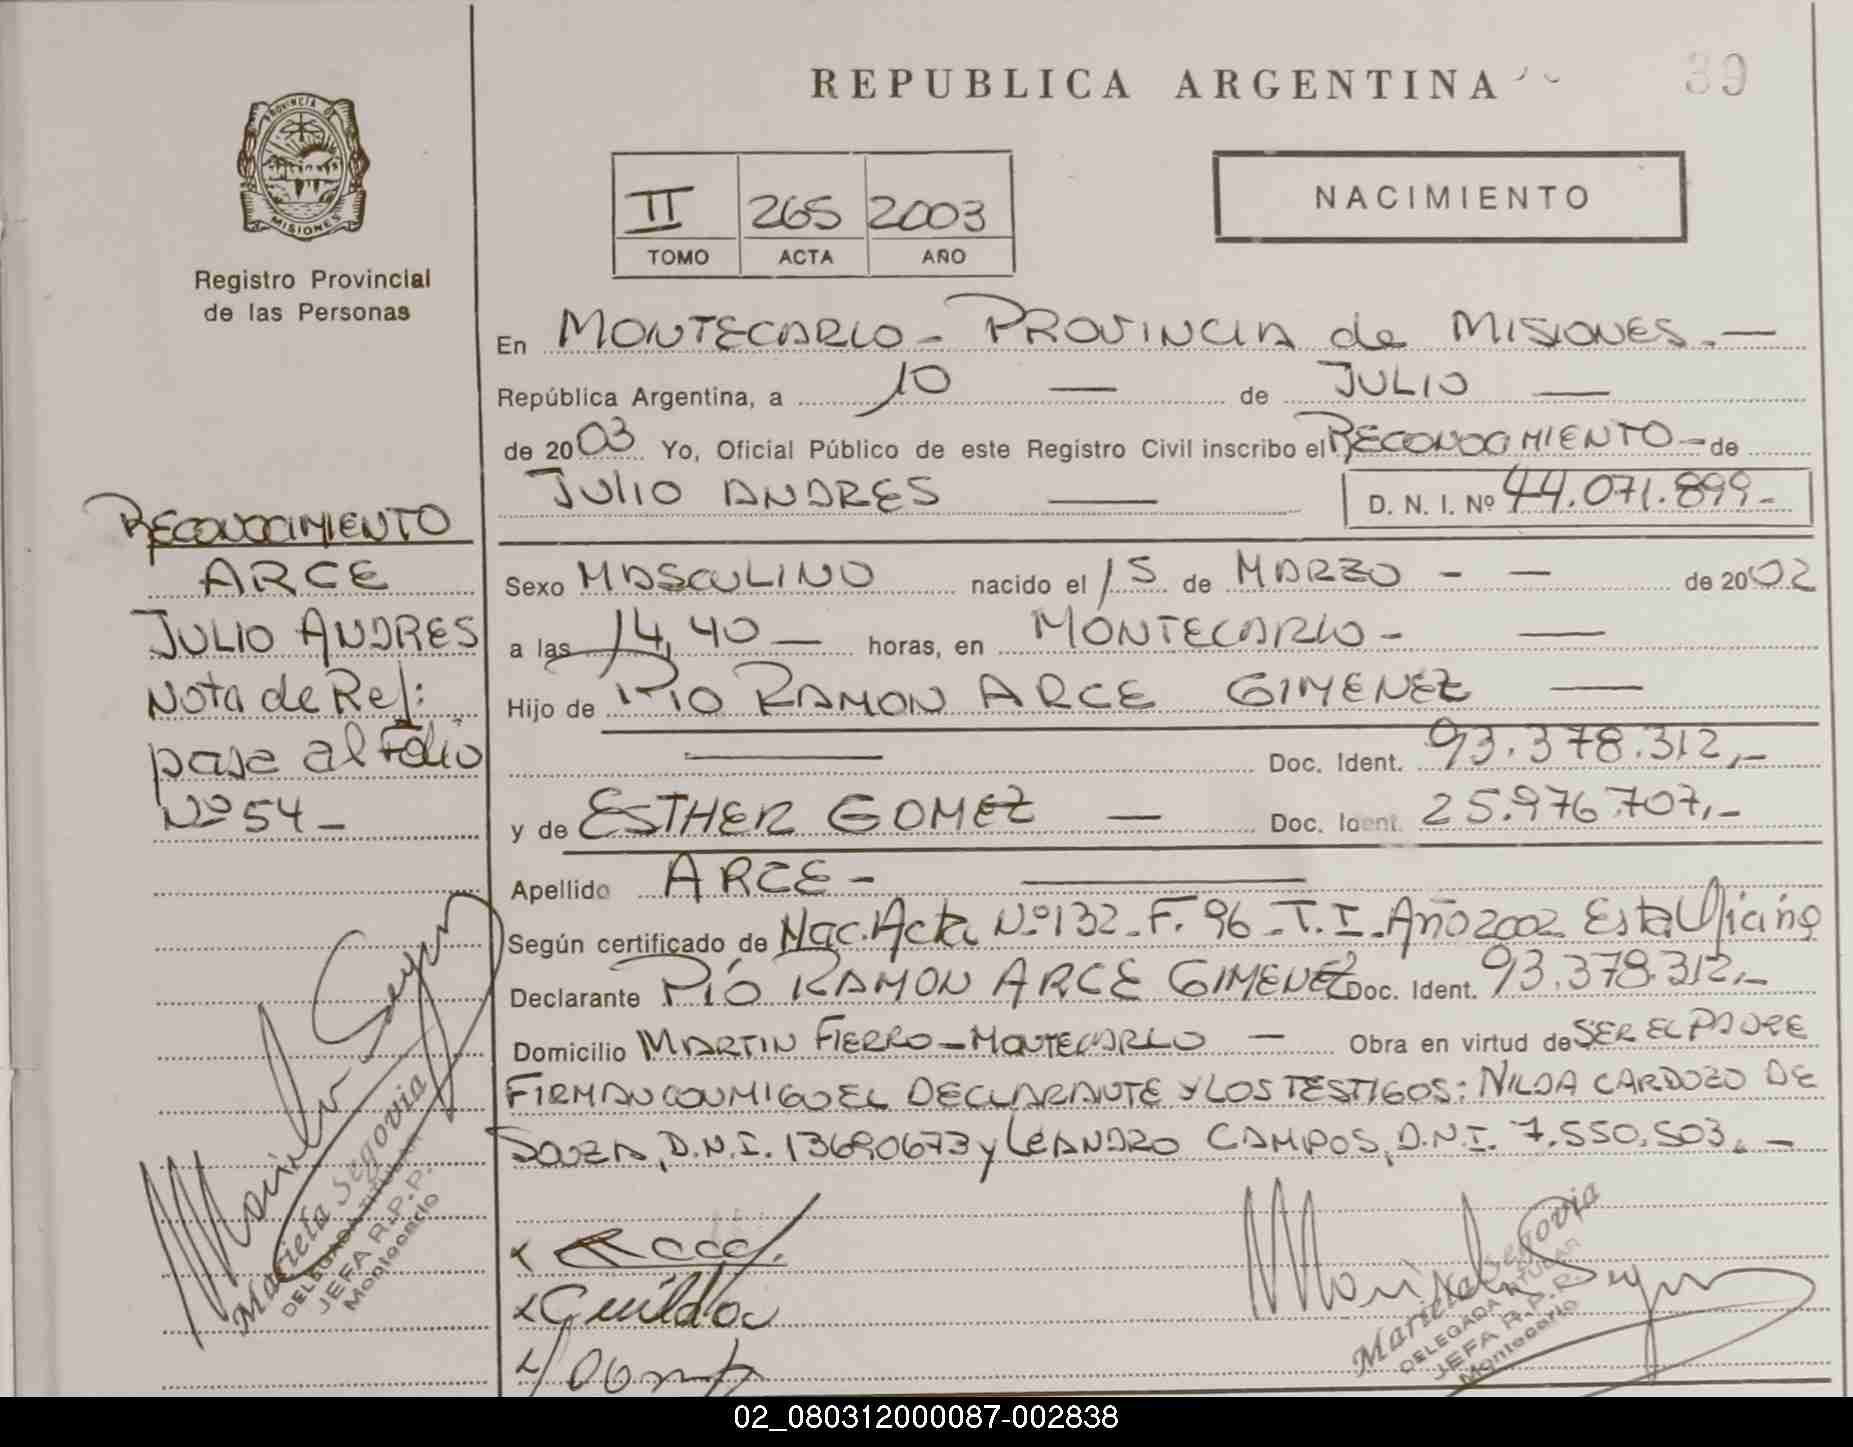 REPUBLICA ARGENTINA
39
PROVINCIA DE
MISIONES
Registro Provincial
de las Personas
II 265 2003
TOMO ACTA AÑO
NACIMIENTO
En MONTECARLO - PROVINCIA de MISIONES.-
República Argentina, a 10 — de JULIO —
de 2003 Yo, Oficial Público de este Registro Civil inscribo el RECONOCIMIENTO - de
JULIO ANDRES — D. N. I. Nº 44.071.899-
Sexo MASCULINO nacido el 15 de MARZO - - de 2002
a las 14,40 — horas, en MONTECARLO - —
Hijo de PIO RAMON ARCE GIMENEZ —
— Doc. Ident. 93.378.312,-
y de ESTHER GOMEZ — Doc. Ident. 25.976.707,-
Apellido ARCE - —
Según certificado de Nac. Acta Nº 132 - F. 96 - T. I - Año 2002 Esta Oficina
Declarante PIO RAMON ARCE GIMENEZ Doc. Ident. 93.378.312,-
Domicilio MARTIN FIERRO - MONTECARLO — Obra en virtud de SER EL PADRE
FIRMAN CONMIGO EL DECLARANTE Y LOS TESTIGOS: NILDA CARDOZO DE
SOUZA, D.N.I. 13690673 y LEANDRO CAMPOS, D.N.I. 7.550.503. -
RECONOCIMIENTO
ARCE
JULIO ANDRES
Nota de Ref:
pase al Folio
Nº 54 -
Mariela Segovia
DELEGADA TITULAR
JEFA R.P.P.
Montecarlo
Mariela Segovia
DELEGADA TITULAR
JEFA R.P.P.
Montecarlo
02_080312000087-002838